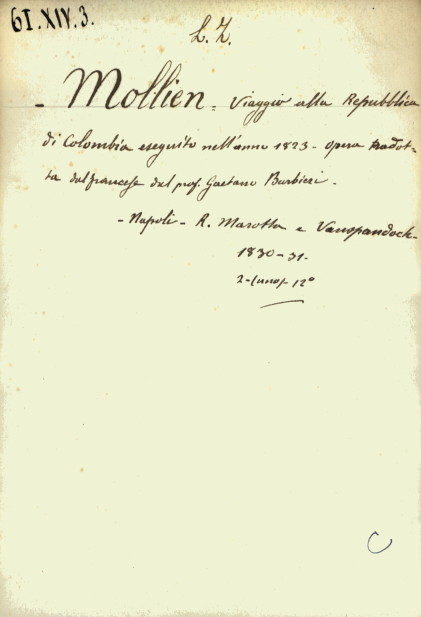 61.XIV.3.
L. Z.
- Mollien. Viaggio alla Repubblica
di Colombia eseguito nell'anno 1823 - opera tradot-
ta dal francese dal prof. Gaetano Barbieri.
- Napoli - R. Marotta e Vanspandoch -
1830-31.
2-(uno)- 12°
C